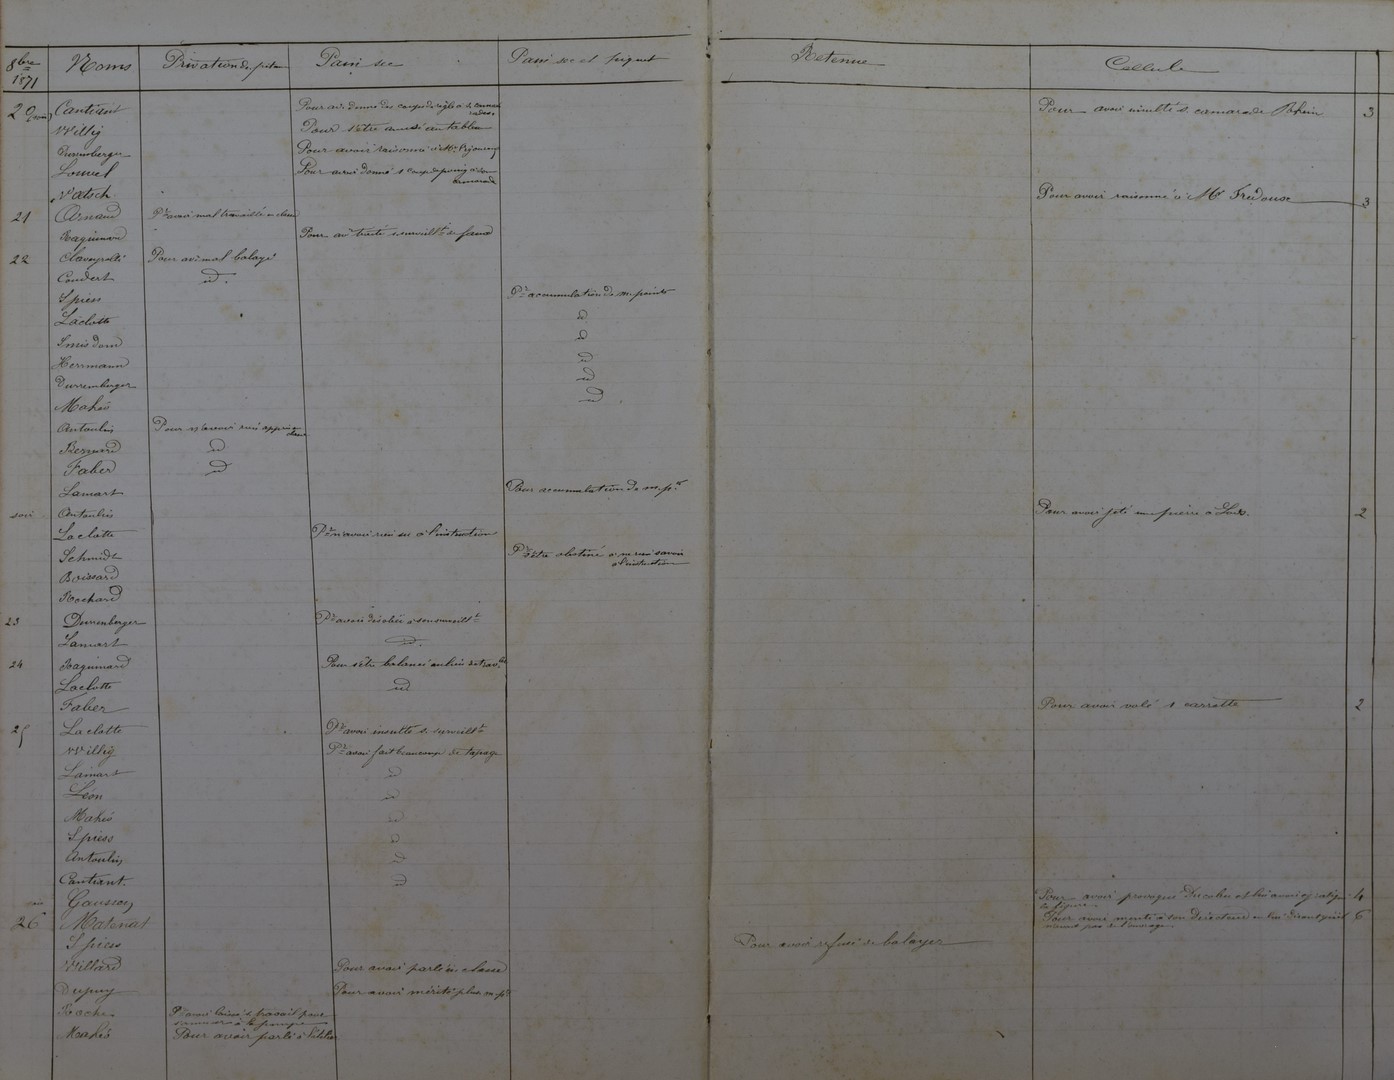 8bre 1871 Noms Privation de pite Pain sec Pain sec et piquet Retenue Cellule
20 Cantiant Pour avr donné des coups de règle à s. camarades Pour avoir insulté s. camarade Rhein 3
Willig Pour s'être amusé au tableau
Durremberger Pour avoir raisonné à Mr
Louvel Pour avoir donné 1 coup de poing à son camarade
Watsch Pour avoir raisonné à Mr Fredouse 3
21 Arnaud Pr avoir mal travaillé en classe
Raguinard Pour av. traité s. surveillt de
22 Pour av. mal balayé
Coudert id.
Spiess Pr accumulation de m. points
Laclotte id
id
Herrmann id
Durremberger id
Mahé id
Antoulin Pour n'avoir rien appris en classe
Bernard id
Faber id
Lamart Pour accumulation de m. pts
soir Antoulin Pour avoir jeté une pierre à 2
Laclotte Pr n'avoir rien su à l'instruction
Schmidt Pr s'être obstiné à ne rien savoir à l'instruction
Boissard
Rochard
23 Durremberger Pr avoir désobéi à son surveillt
Lamart id.
24 Raguinard Pour s'être balancé au lieu de trav.ler
Laclotte id
Faber Pour avoir volé 1 carrotte 2
25 Laclotte Pr avoir insulté s. surveillt
Willig Pr avoir fait beaucoup de tapage
Lamart id
Léon id
Mahé id
Spiess id
Antoulin id
Cantiant. id
soir Gausson Pour avoir provoqué et lui avoir égratigné la figure 4
26 Matenat Pour avoir menti à son Directeur en lui disant qu'il n'avait pas de l'ouvrage 6
Spiess Pour avoir refusé de balayer
Villard Pour avoir parlé en classe
Dupuy Pour avoir mérité plus. m. pts
Roche Pr avoir laissé s. travail pour s'amuser à la pompe
Mahé Pour avoir parlé à l'atelier